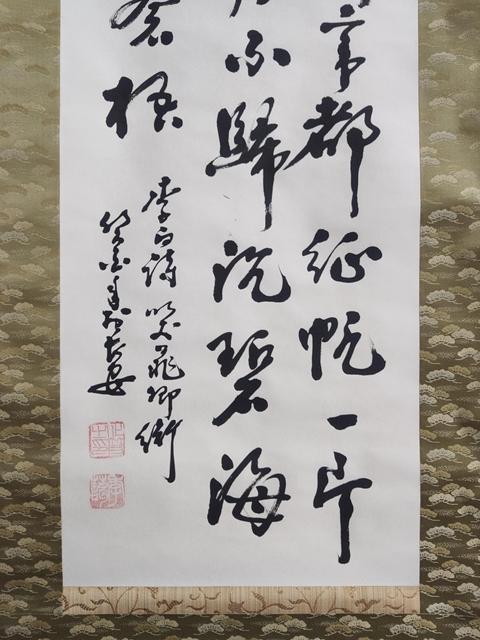 帝都征帆一片
不歸沉碧海
蒼梧
李白詩 哭晁卿衡
於長安